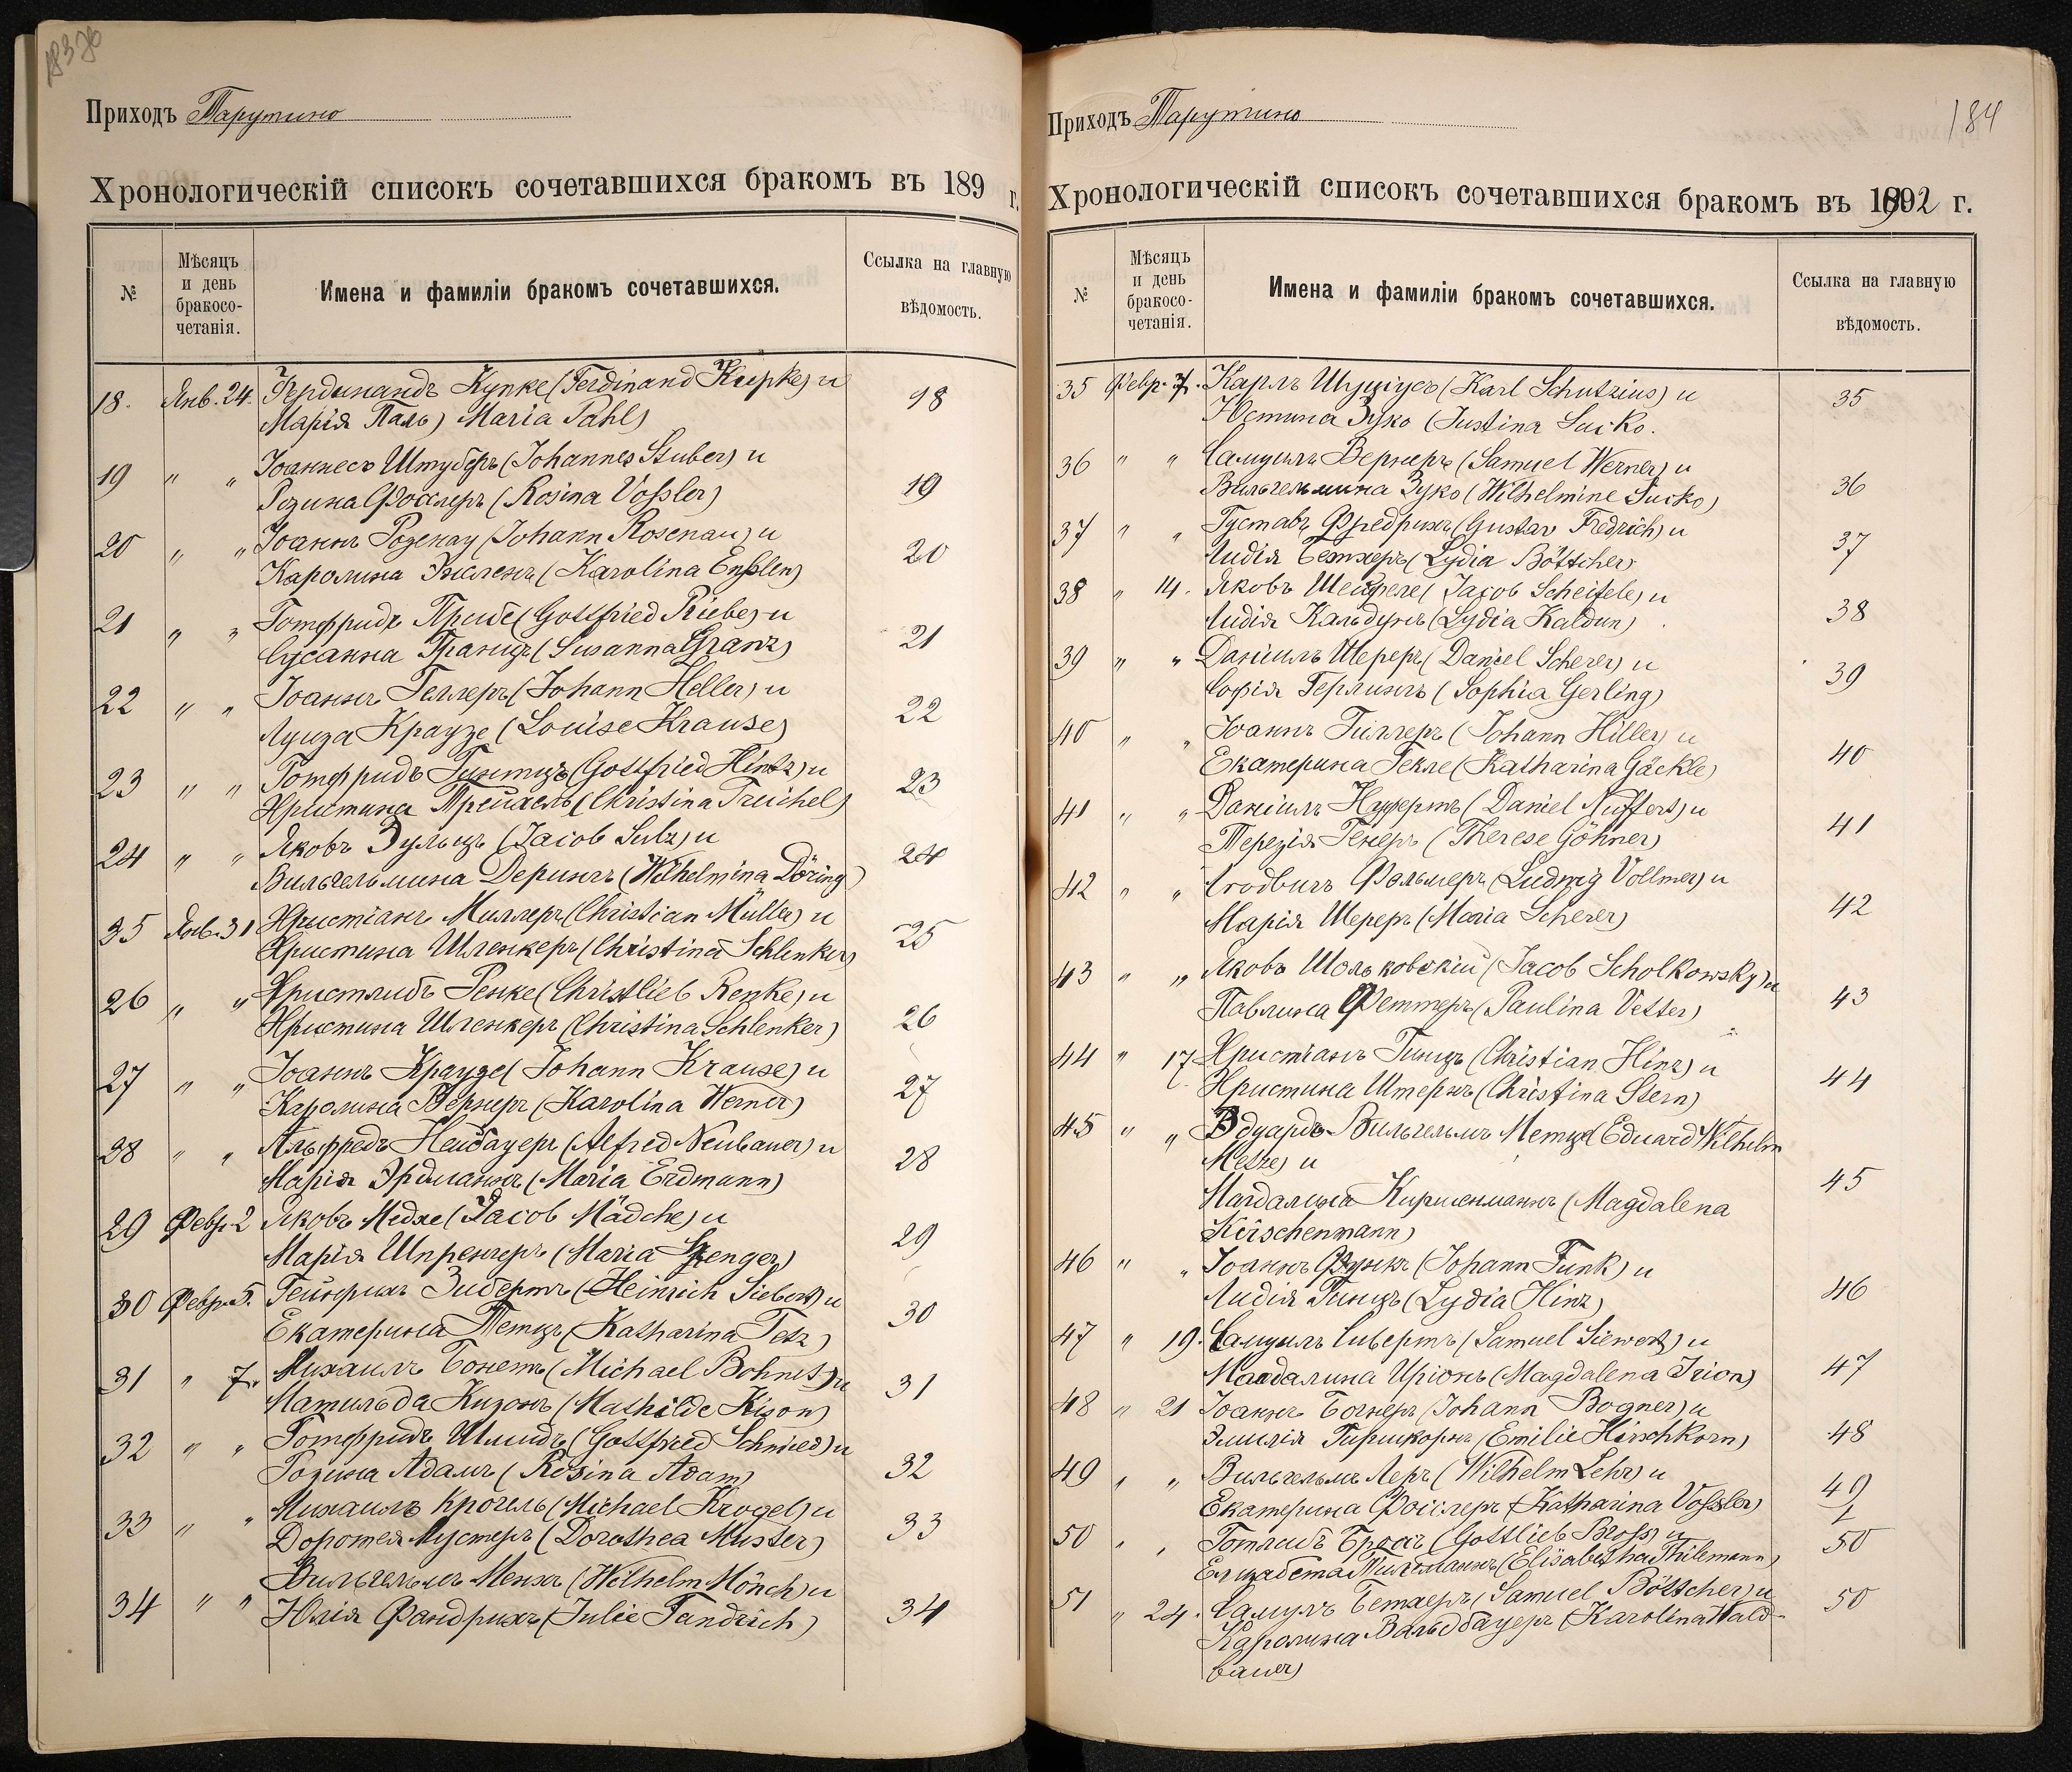 183 об
Приходъ Тарутино
Хронологическій списокъ сочетавшихся бракомъ въ 189 г.
№
Мѣсяцъ
и день
бракосо-
четанія.
Имена и фамиліи бракомъ сочетавшихся.
Ссылка на главную
вѣдомость.
18. Янв. 24. Фердинандъ Купке (Ferdinand Kupke) и
Марія Паль) Maria Pahl) 18
19 " " Іоаннесъ Штуберъ (Johannes Stuber) и
Розина Фосслеръ (Rosina Voßler) 19
20 " " Іоаннъ Розенау (Johann Rosenau) и
Каролина Энсленъ (Karolina Enßlen) 20
21 " " Готфридъ Прибе (Gottfried Priebe) и
Сусанна Гранцъ (Susanna Granz) 21
22 " " Іоаннъ Геллеръ (Johann Heller) и
Луиза Краузе (Louise Krause) 22
23 " " Готфридъ Гинтцъ (Gottfried Hintz) и
Христина Трейхель (Christina Treichel) 23
24 " " Яковъ Зульцъ (Jacob Sulz) и
Вильгельмина Дерингъ (Wilhelmina Döring) 24
25 Янв. 31 Христіанъ Миллеръ (Christian Müller) и
Христина Шленкеръ (Christina Schlenker) 25
26 " " Христлибъ Ренке (Christlieb Renke) и
Христина Шленкеръ (Christina Schlenker) 26
27 " " Іоаннъ Краузе (Johann Krause) и
Каролина Вернеръ (Karolina Werner) 27
28 " " Альфредъ Нейбауеръ (Alfred Neubauer) и
Марія Эрдманнъ (Maria Erdmann) 28
29 Февр. 2 Яковъ Медхе (Jacob Mädche) и
Марія Шпренгеръ (Maria Sprenger) 29
30 Февр. 5. Гейнрихъ Зибертъ (Heinrich Siebert) и
Екатерина Тетцъ (Katharina Tetz) 30
31 " 7. Михаилъ Бонетъ (Michael Bohnet) и
Матильда Кизонъ (Mathilde Kison) 31
32 " " Готфридъ Шмидъ (Gottfried Schmied) и
Розина Адамъ (Rosina Adam) 32
33 " " Михаилъ Крогель (Michael Krogel) и
Доротея Мустеръ (Dorothea Muster) 33
34 " " Вильгельмъ Менхъ (Wilhelm Mönch) и
Юлія Фандрихъ (Julie Fandrich) 34
184
Приходъ Тарутино
Хронологическій списокъ сочетавшихся бракомъ въ 1892 г.
№
Мѣсяцъ
и день
бракосо-
четанія.
Имена и фамиліи бракомъ сочетавшихся.
Ссылка на главную
вѣдомость.
35 Февр. 7. Карлъ Шуціусъ (Karl Schutzius) и
Юстина Зуко (Justina Sucko. 35
36 " " Самуилъ Вернеръ (Samuel Werner) и
Вильгельмина Зуко (Wilhelmine Sucko) 36
37 " " Густавъ Фредрихъ (Gustav Fredrich) и
Лидія Бетхеръ (Lydia Böttcher) 37
38 " 14. Яковъ Шейфеле (Jacob Scheifele) и
Лидія Кальдунъ (Lydia Kaldun) 38
39 " " Даніилъ Шереръ (Daniel Scherer) и
Софія Герлингъ (Sophia Gerling) 39
40 " " Іоаннъ Гиллеръ (Johann Hiller) и
Екатерина Гекле (Katharina Gäckle) 40
41 " " Даніилъ Нуфертъ (Daniel Nuffert) и
Терезія Генеръ (Therese Göhner) 41
42 " " Людвигъ Фольмеръ (Ludwig Vollmer) и
Марія Шереръ (Maria Scherer) 42
43 " " Яковъ Шольковскій (Jacob Scholkowsky) и
Павлина Феттеръ (Paulina Vetter) 43
44 " 17 Христіанъ Гинцъ (Christian Hinz) и
Христина Штернъ (Christina Stern) 44
45 " " Эдуардъ-Вильгельмъ Метце (Eduard Wilhelm
Metze) и
Магдалина Киршенманнъ (Magdalena
Kirschenmann) 45
46 " " Іоаннъ Функъ (Johann Funk) и
Лидія Гинцъ (Lydia Hinz) 46
47 " 19. Самуилъ Сивертъ (Samuel Siewert) и
Магдалина Иріонъ (Magdalena Irion) 47
48 " 21 Іоаннъ Богнеръ (Johann Bogner) и
Эмилія Гиршкорнъ (Emilie Hirschkorn) 48
49 " " Вильгельмъ Леръ (Wilhelm Lehr) и
Екатерина Фосслеръ (Katharina Voßler) 49
50 " " Готлибъ Бросъ (Gottlieb Bross) и
Елизабета Тилеманнъ (Elisabetha Thilemann) 50
51 " 24. Самулъ Бетхеръ (Samuel Böttcher) и
Каролина Вальдбауеръ (Karolina Wald-
bauer) 50